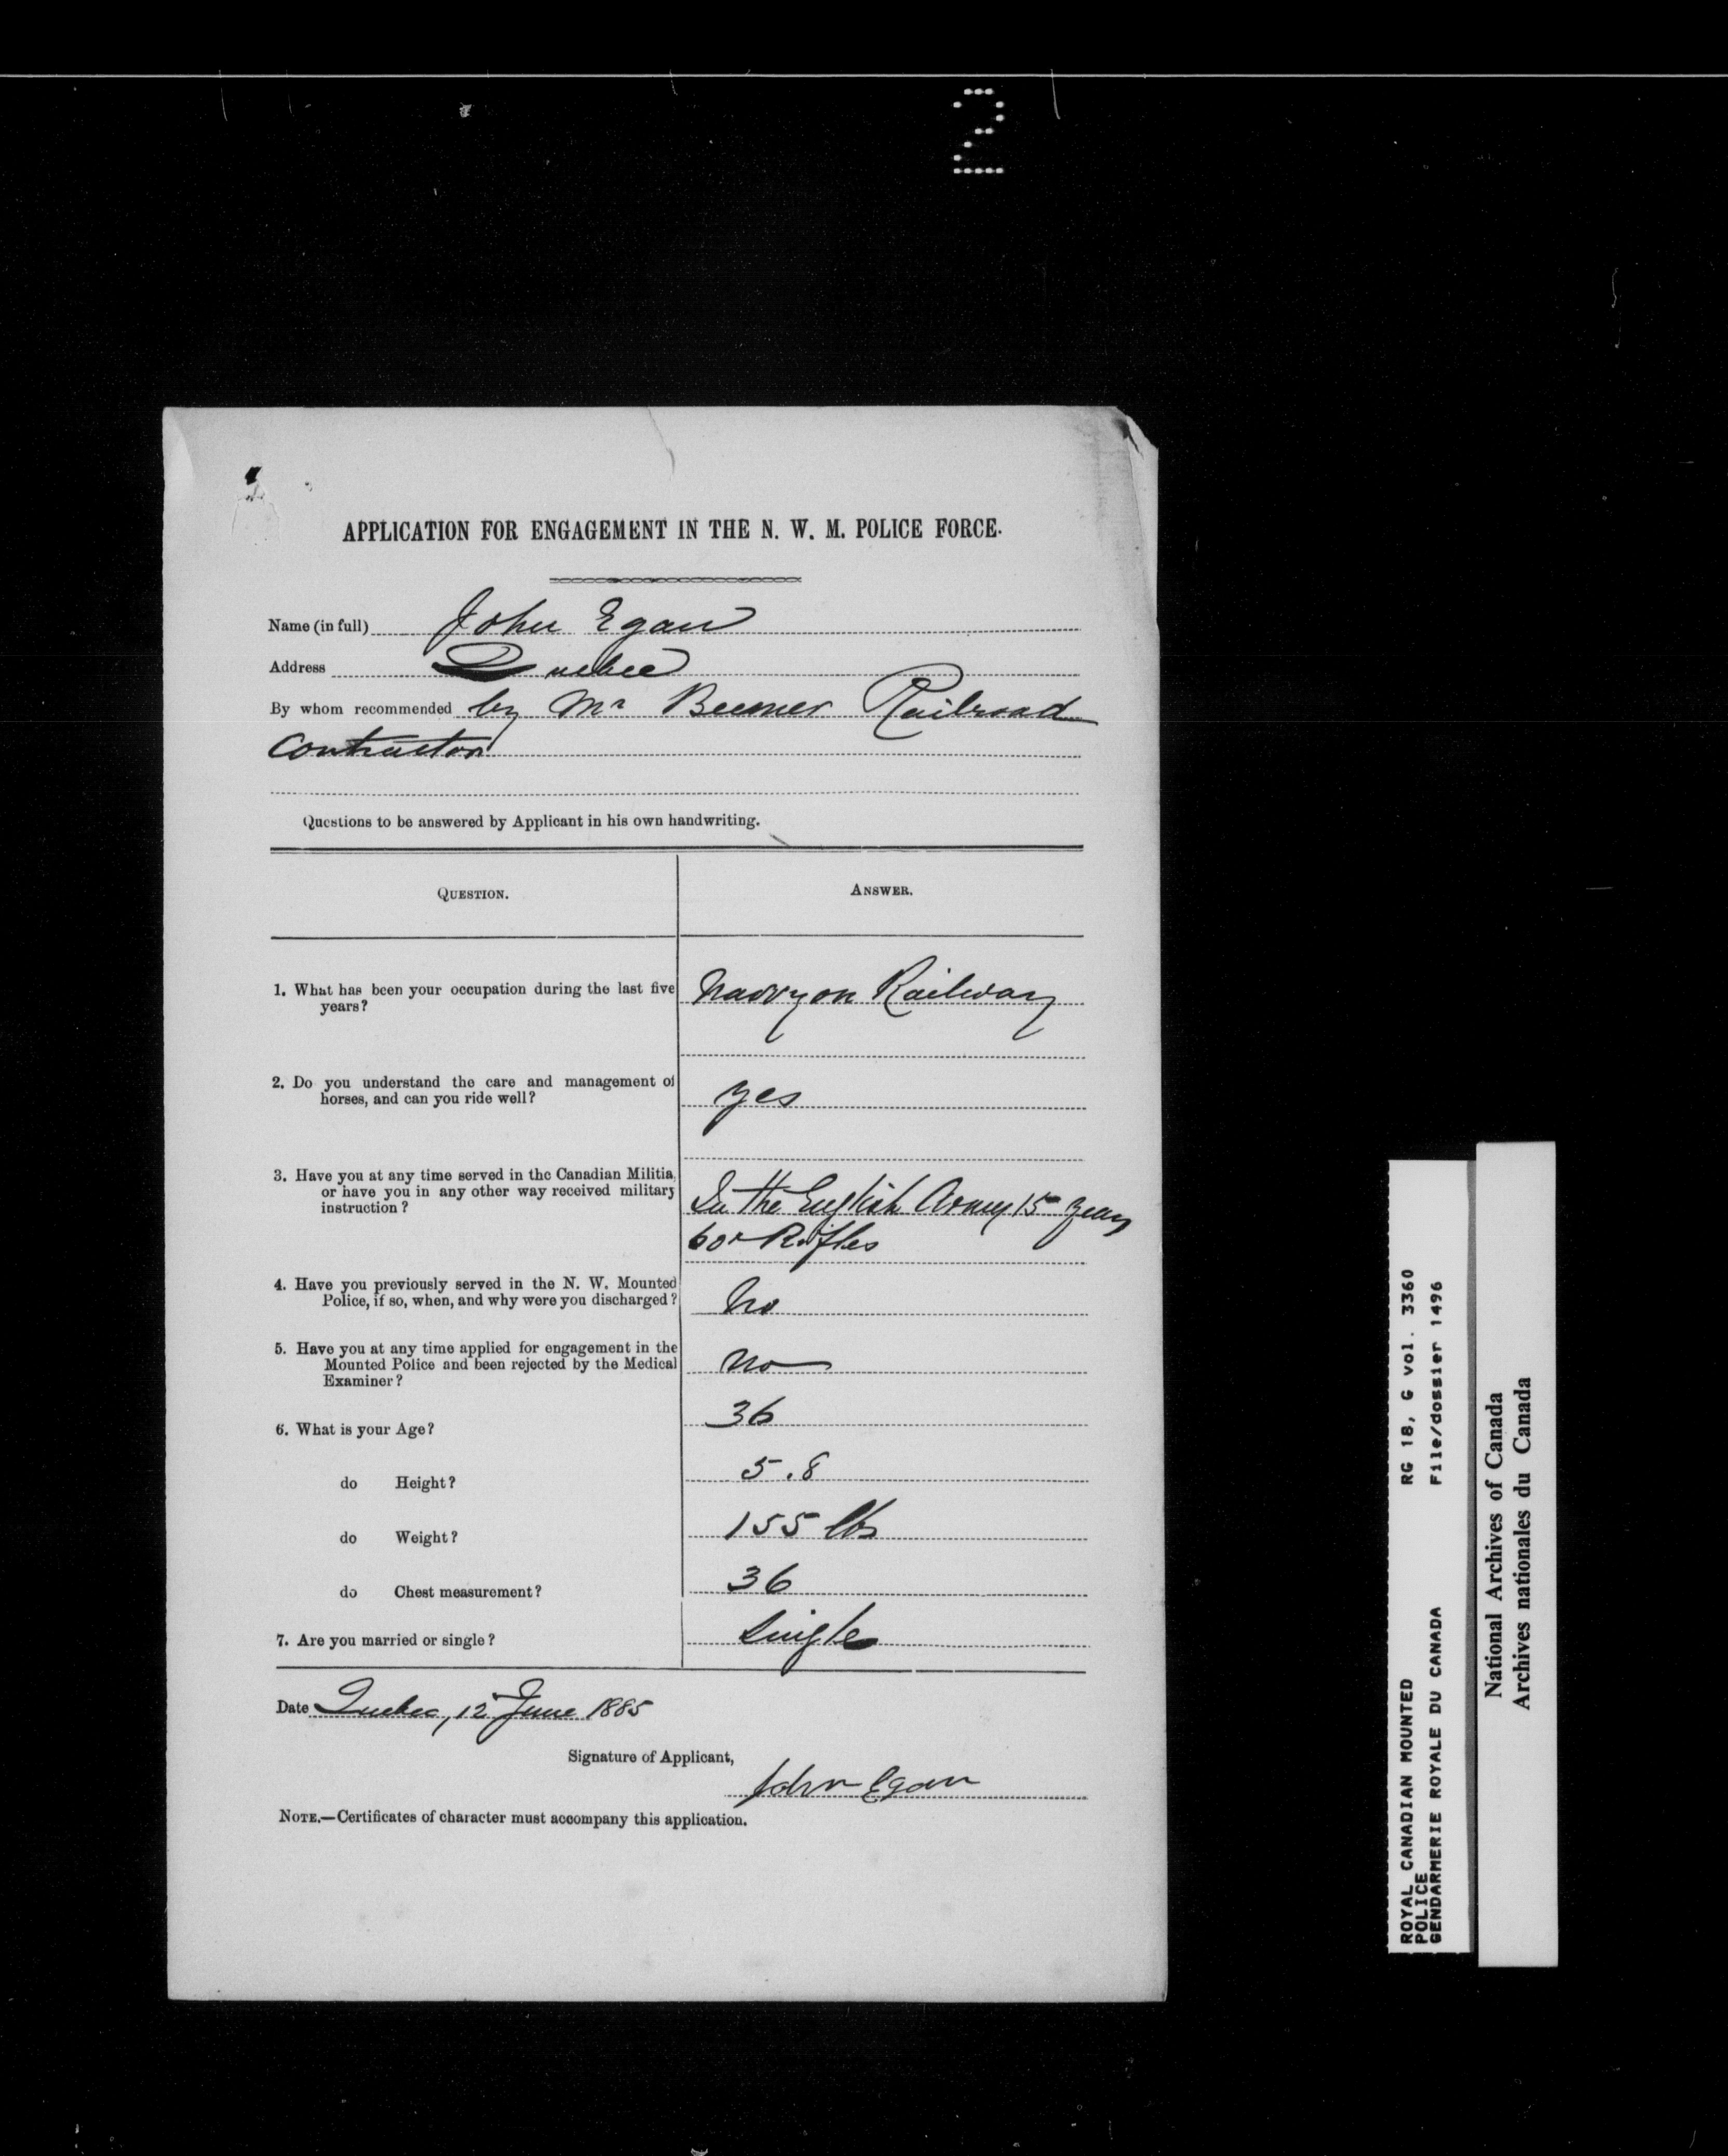 2
APPLICATION FOR ENGAGEMENT IN THE N. W. M. POLICE FORCE.
Name (in full) John Egan
Address Quebec
By whom recommended by Mr Beemer Railroad
Contractor
Questions to be answered by Applicant in his own handwriting.
QUESTION. ANSWER.
1. What has been your occupation during the last five years? Navvy on Railway
2. Do you understand the care and management of
horses, and can you ride well? yes
3. Have you at any time served in the Canadian Militia,
or have you in any other way received military
instruction? In the English Army 15 years
60r Rifles
4. Have you previously served in the N. W. Mounted
Police, if so, when, and why were you discharged? No
5. Have you at any time applied for engagement in the
Mounted Police and been rejected by the Medical
Examiner? No
6. What is your Age? 36
do Height? 5.8
do Weight? 155 lbs
do Chest measurement? 36
7. Are you married or single? Single
Date Quebec, 12 June 1885
Signature of Applicant,
John Egan
NOTE.—Certificates of character must accompany this application.
ROYAL CANADIAN MOUNTED RG 18, G vol. 3360
POLICE
GENDARMERIE ROYALE DU CANADA File/dossier 1496
National Archives of Canada
Archives nationales du Canada